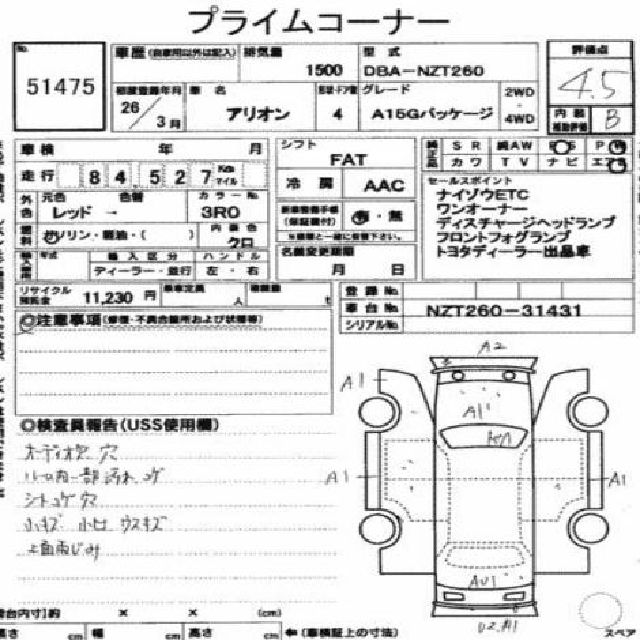 プライムコーナー
No. 51475
車歴 (自家用以外は記入) 排気量 1500 型式 DBA-NZT260
評価点 4.5
初度登録年月 26/3月 車名 アリオン 形状・ドア数 4 グレード A15Gパッケージ 2WD・4WD
内装補助評価 B
車検 年 月
走行 84,527 Km マイル
シフト FAT
冷房 AAC
純正 SR 純AW PS PW
カワ TV ナビ エアB
外色 元色 レッド → 色替 カラーNo. 3R0
燃料 ガソリン・軽油・( ) 内装色 クロ
年式 輸入区分 ディーラー・並行 ハンドル 左・右
新車整備手帳 (保証書付) 有・無
名義変更期限 月 日
セールスポイント
ナイゾウETC
ワンオーナー
ディスチャージヘッドランプ
フロントフォグランプ
トヨタディーラー出品車
リサイクル預託金 11,230 円 乗車定員 人 積載量 t
登録No.
車台No. NZT260-31431
シリアルNo.
◎注意事項 (修復・不具合箇所および状態等)
◎検査員報告 (USS使用欄)
オーディオ穴 穴
ルーム内一部汚れ コゲ
シートコゲ穴
小キズ 小凹 ウスキズ
上面雨じみ
A2
A1 A1
A1 A1
AU1
U2.A1
荷台内寸) 約 × × (cm)
長さ cm 幅 cm 高さ cm ← (車検証上の寸法)
スペア